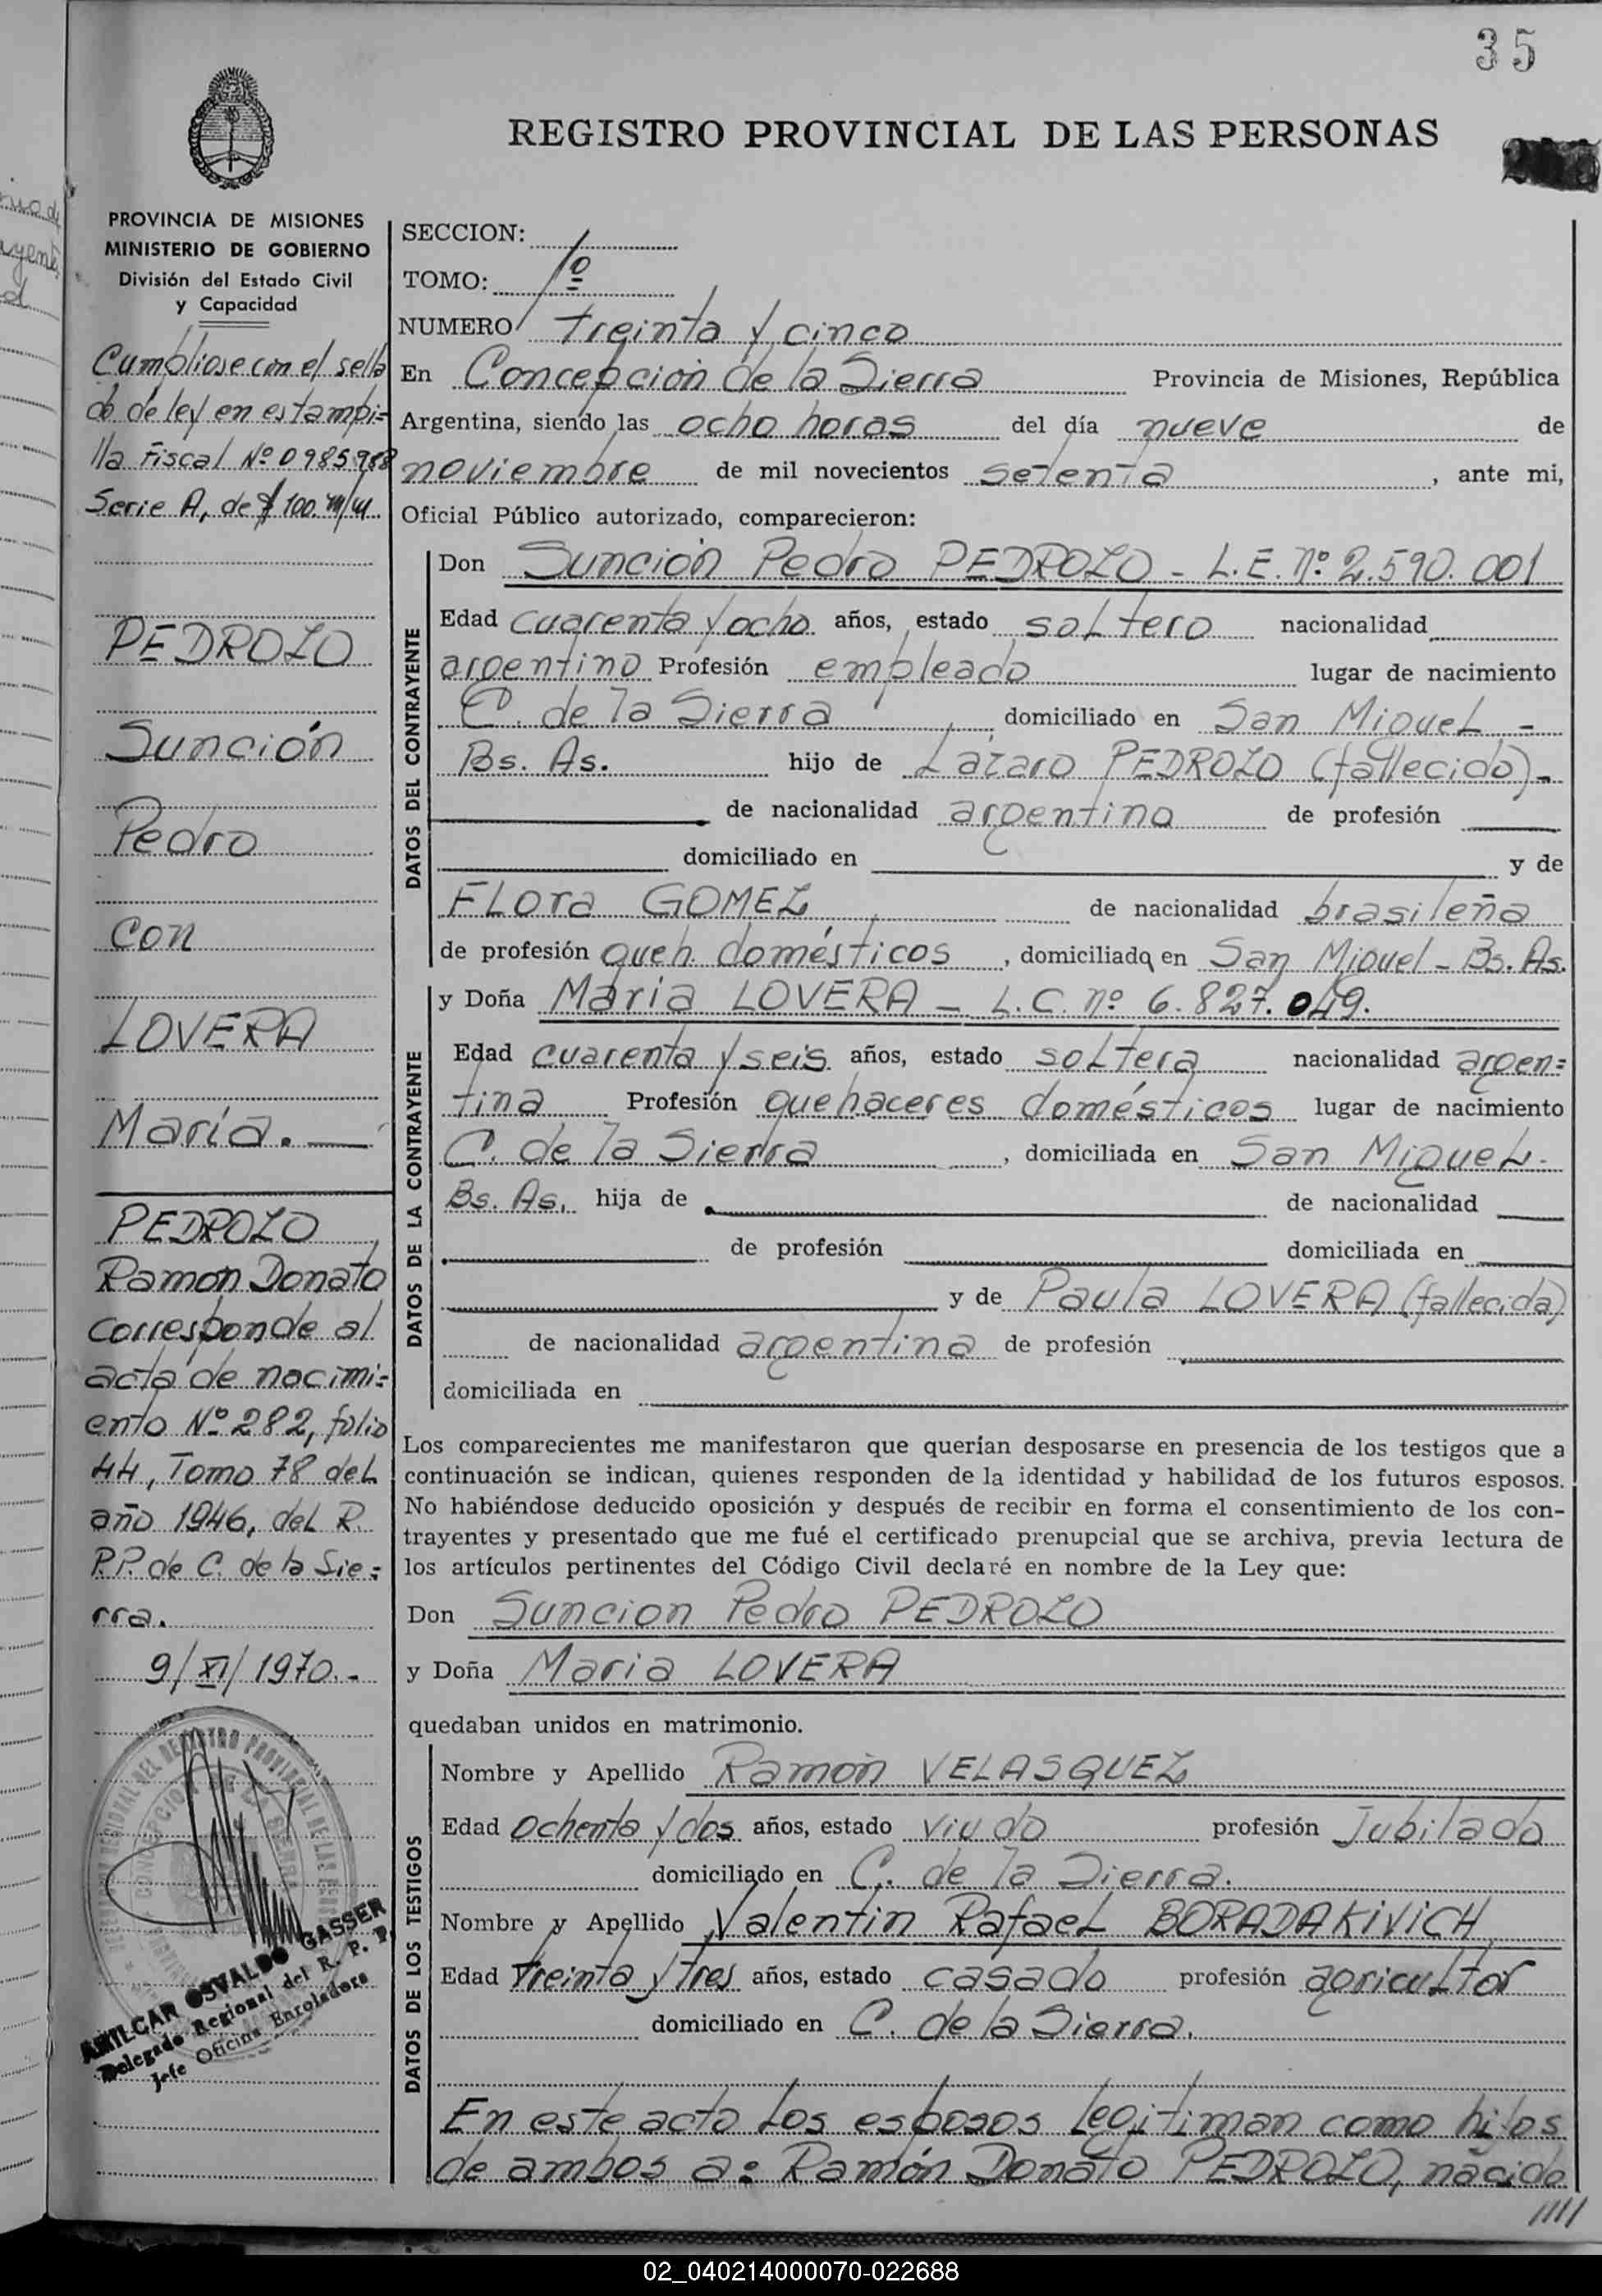 35
REGISTRO PROVINCIAL DE LAS PERSONAS
PROVINCIA DE MISIONES
MINISTERIO DE GOBIERNO
División del Estado Civil
y Capacidad
Cumpliose con el sella
do de ley en estampi=
lla Fiscal Nº 0985988
Serie A, de $ 100. m/n.
PEDROZO
Sunción
Pedro
con
LOVERA
María. —
PEDROZO
Ramón Donato
corresponde al
acta de nacimi=
ento Nº 282, folio
44, Tomo 78 del
año 1946, del R.
P.P. de C. de la Sie=
rra.
9/XI/1970.-
AMILCAR OSVALDO GASSER
Delegado Regional del R. P. P.
Jefe Oficina Enroladora
SECCION:
TOMO: 1º
NUMERO Treinta y cinco
En Concepción de la Sierra Provincia de Misiones, República
Argentina, siendo las ocho horas del día nueve de
noviembre de mil novecientos setenta, ante mi,
Oficial Público autorizado, comparecieron:
DATOS DEL CONTRAYENTE
Don Sunción Pedro PEDROZO - L.E. Nº 2.590.001
Edad cuarenta y ocho años, estado soltero nacionalidad
argentino Profesión empleado lugar de nacimiento
C. de la Sierra, domiciliado en San Miguel -
Bs. As. hijo de Lazaro PEDROZO (fallecido)-
de nacionalidad argentina de profesión
domiciliado en y de
Flora GOMEZ de nacionalidad brasileña
de profesión queh. domésticos, domiciliada en San Miguel - Bs. As.
DATOS DE LA CONTRAYENTE
y Doña María LOVERA - L.C. nº 6.827.049.
Edad cuarenta y seis años, estado soltera nacionalidad argen=
tina Profesión quehaceres domésticos lugar de nacimiento
C. de la Sierra, domiciliada en San Miguel.
Bs. As. hija de de nacionalidad
de profesión domiciliada en
y de Paula LOVERA (fallecida)
de nacionalidad argentina de profesión
domiciliada en
Los comparecientes me manifestaron que querían desposarse en presencia de los testigos que a
continuación se indican, quienes responden de la identidad y habilidad de los futuros esposos.
No habiéndose deducido oposición y después de recibir en forma el consentimiento de los con-
trayentes y presentado que me fué el certificado prenupcial que se archiva, previa lectura de
los artículos pertinentes del Código Civil declaré en nombre de la Ley que:
Don Suncion Pedro PEDROZO
y Doña Maria LOVERA
quedaban unidos en matrimonio.
DATOS DE LOS TESTIGOS
Nombre y Apellido Ramón VELASQUEZ
Edad Ochenta y dos años, estado viudo profesión Jubilado
domiciliado en C. de la Sierra.
Nombre y Apellido Valentin Rafael BORADAKIVICH
Edad Treinta y tres años, estado casado profesión agricultor
domiciliado en C. de la Sierra.
En este acto los esposos legitiman como hijos
de ambos a: Ramón Donato PEDROZO, nacido
////
02_040214000070-022688